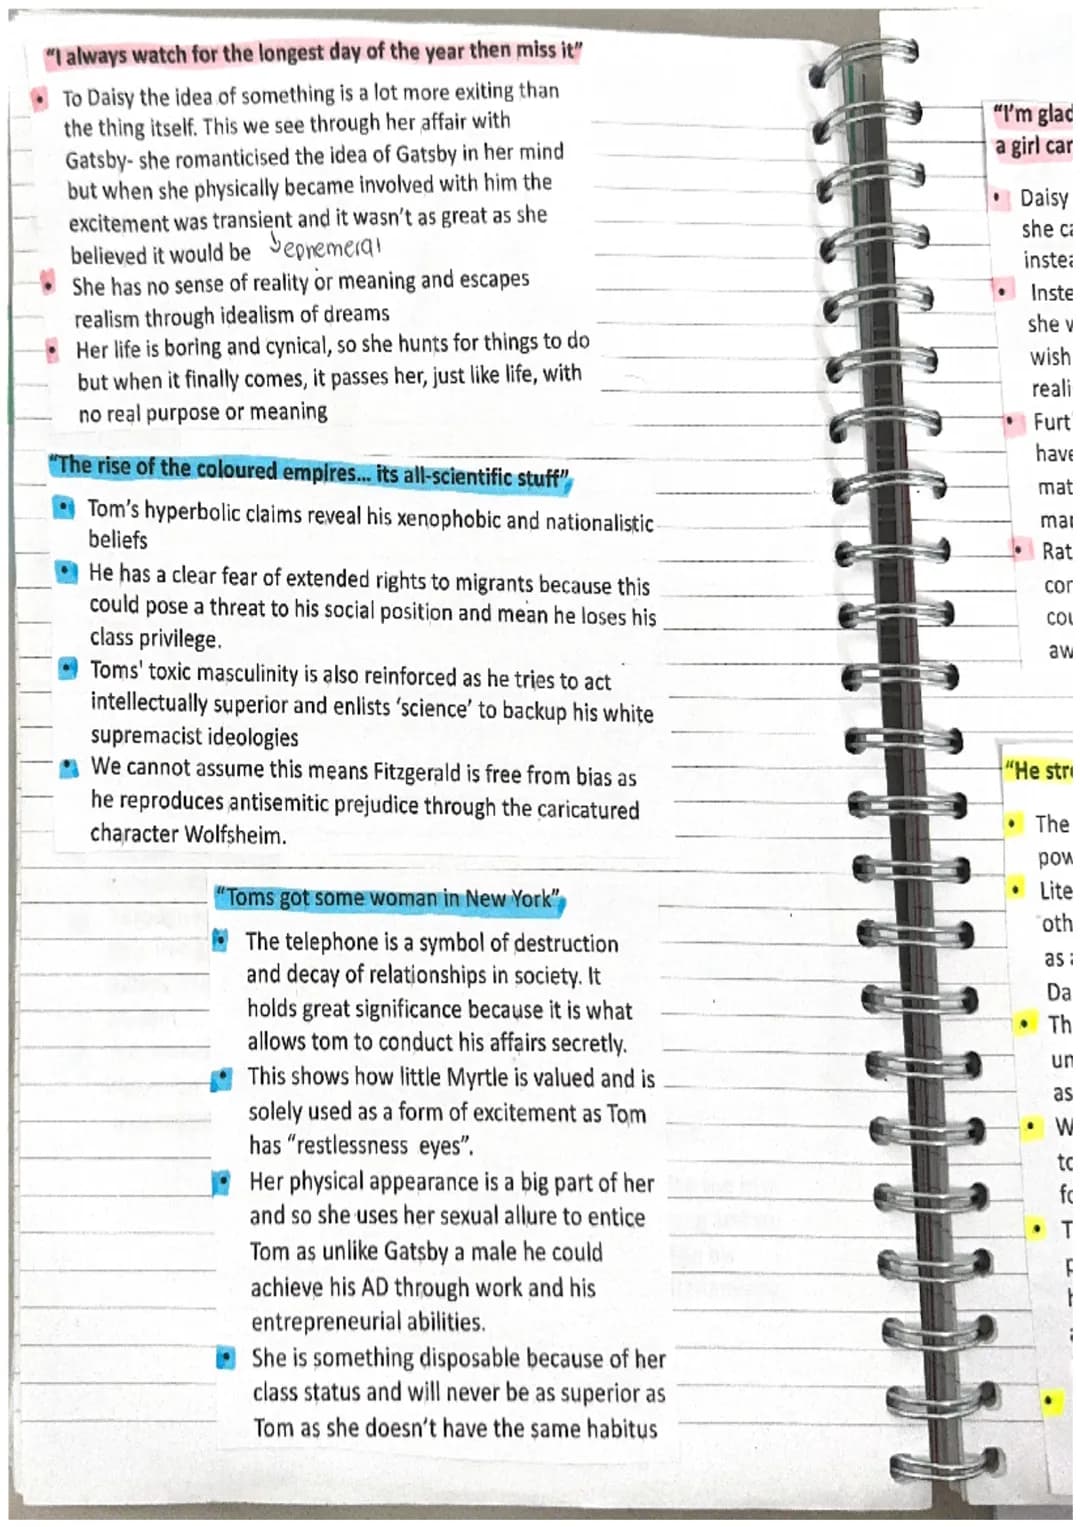 “I always watch for the longest day of the year then miss it”
• To Daisy the idea of something is a lot more exiting than
the thing itself. This we see through her affair with
Gatsby- she romanticised the idea of Gatsby in her mind
but when she physically became involved with him the
excitement was transient and it wasn't as great as she
believed it would be epnemeral
• She has no sense of reality or meaning and escapes
realism through idealism of dreams
• Her life is boring and cynical, so she hunts for things to do
but when it finally comes, it passes her, just like life, with
no real purpose or meaning
“The rise of the coloured empires... its all-scientific stuff”
• Tom's hyperbolic claims reveal his xenophobic and nationalistic
beliefs
• He has a clear fear of extended rights to migrants because this
could pose a threat to his social position and mean he loses his
class privilege.
• Toms' toxic masculinity is also reinforced as he tries to act
intellectually superior and enlists ‘science’ to backup his white
supremacist ideologies
• We cannot assume this means Fitzgerald is free from bias as
he reproduces antisemitic prejudice through the caricatured
character Wolfsheim.
“Toms got some woman in New York”
• The telephone is a symbol of destruction
and decay of relationships in society. It
holds great significance because it is what
allows tom to conduct his affairs secretly.
• This shows how little Myrtle is valued and is
solely used as a form of excitement as Tom
has “restlessness eyes”.
• Her physical appearance is a big part of her
and so she uses her sexual allure to entice
Tom as unlike Gatsby a male he could
achieve his AD through work and his
entrepreneurial abilities.
• She is something disposable because of her
class status and will never be as superior as
Tom as she doesn't have the same habitus
“I'm glad
a girl can
• Daisy
she ca
instea
• Inste
she v
wish
reali
• Furt
have
mat
mar
• Rat
cor
cou
aw
“He stre
• The
pow
• Lite
oth
as a
Da
• Th
un
as
• W
to
fo
• T